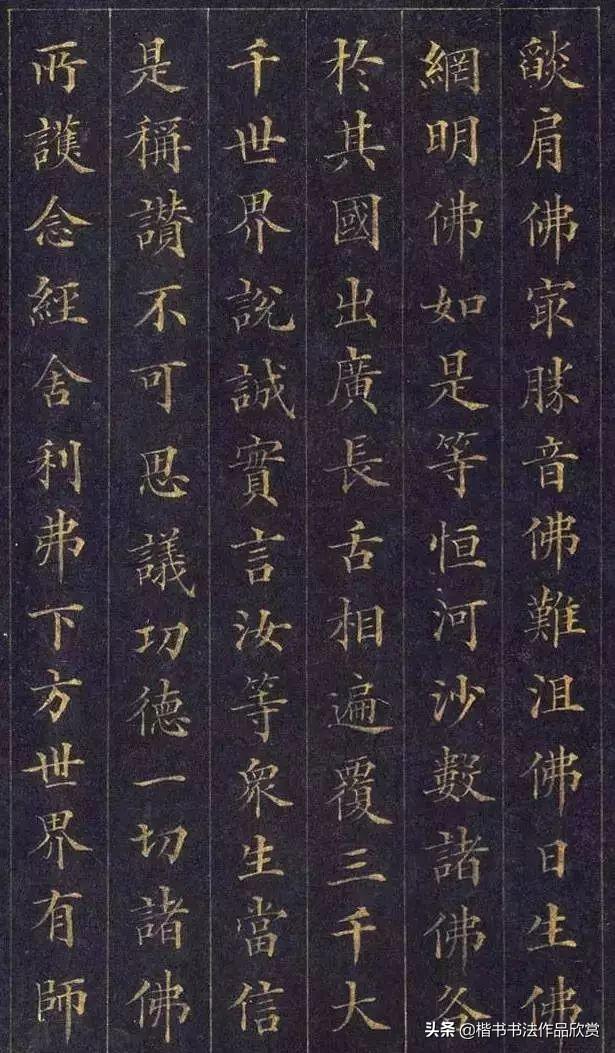 燄肩佛㝡勝音佛難沮佛日生佛
網明佛如是等恒河沙數諸佛各
於其國出廣長舌相遍覆三千大
千世界說誠實言汝等衆生當信
是稱讃不可思議功德一切諸佛
所護念經舍利弗下方世界有師
头条 @楷书书法作品欣赏